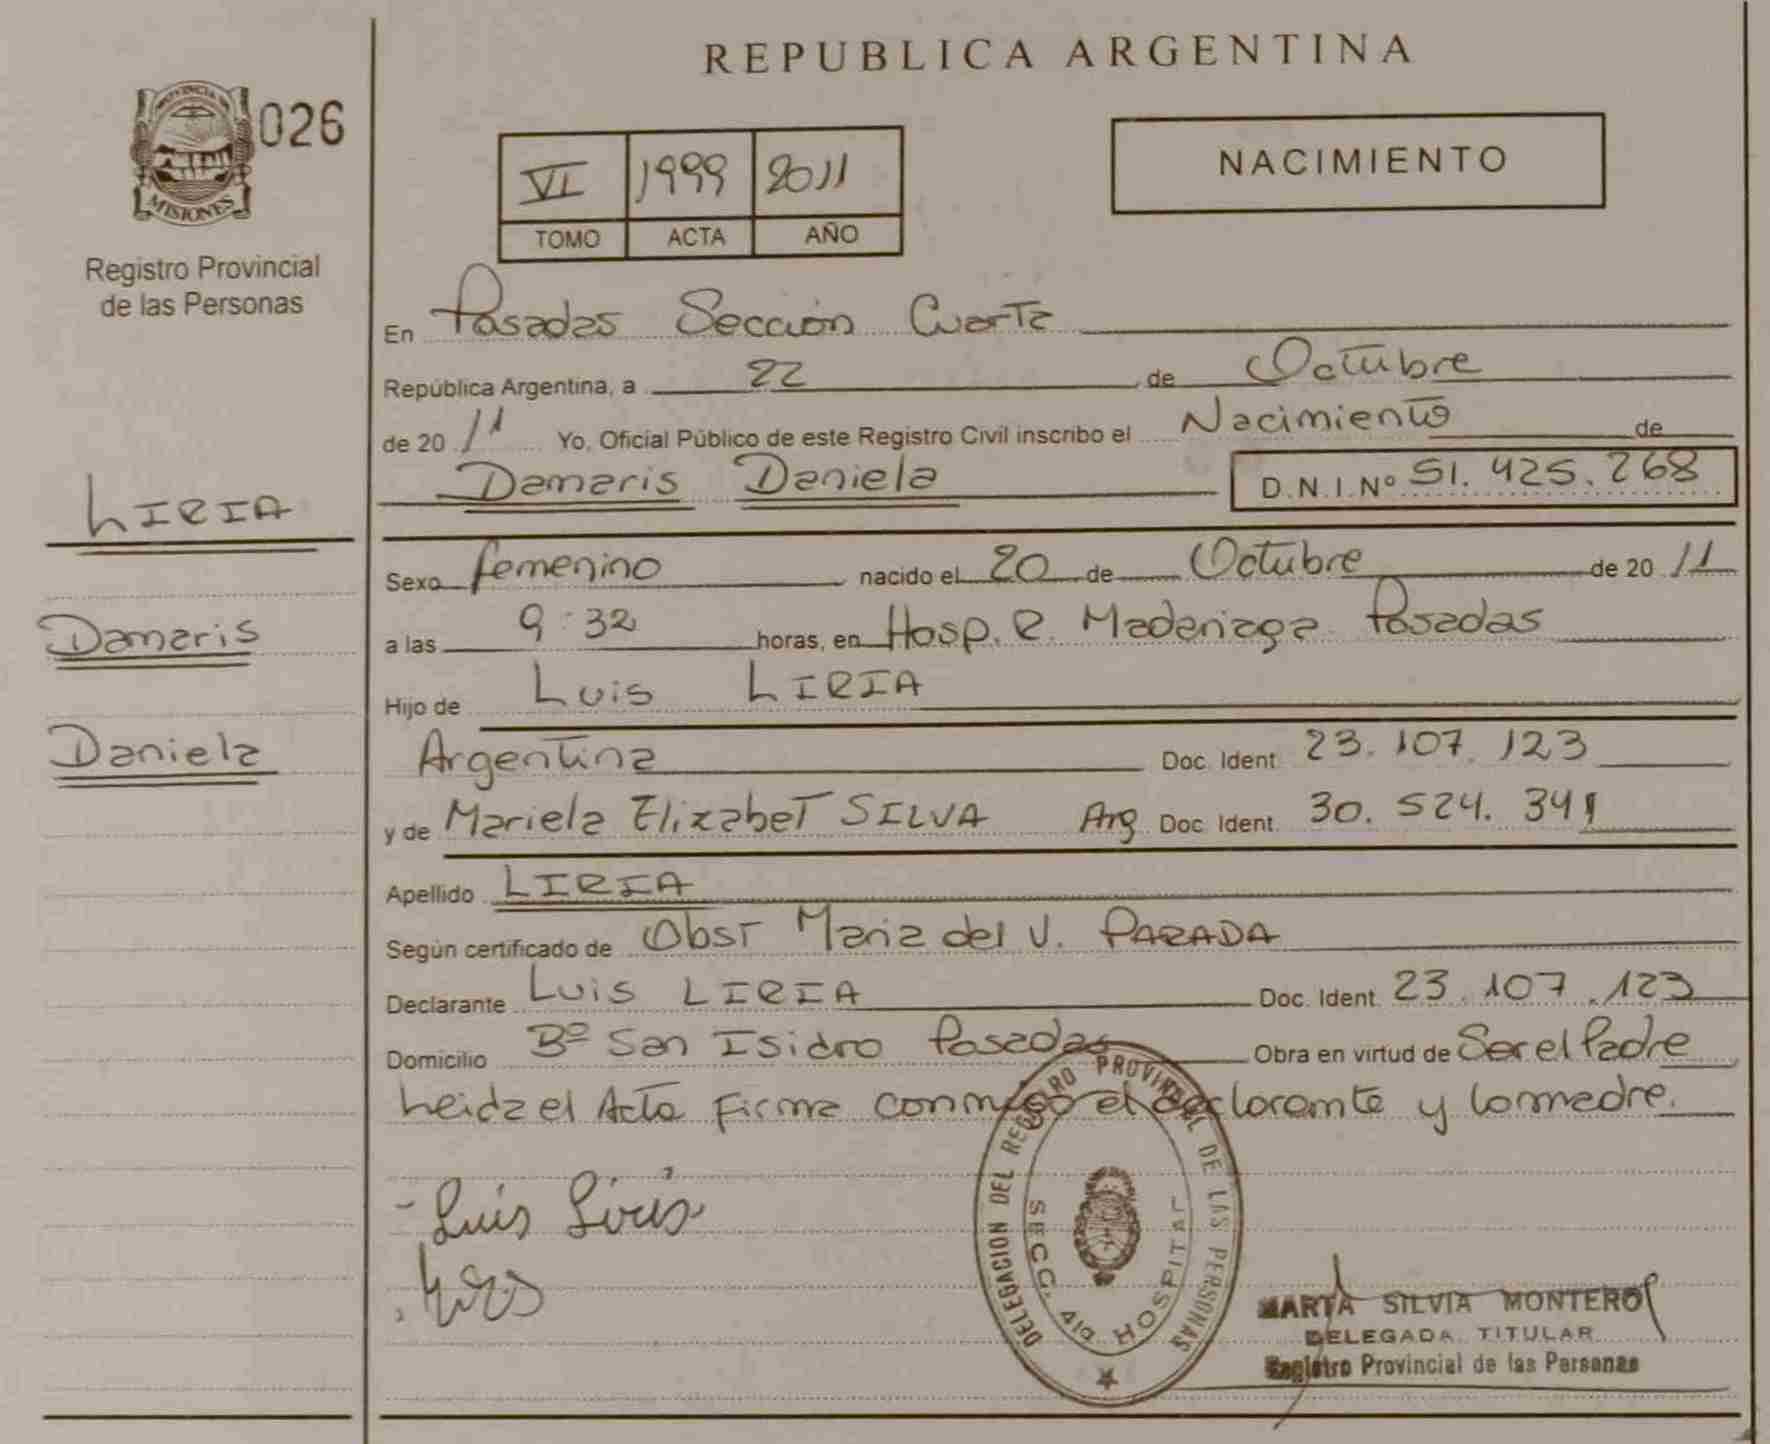 REPUBLICA ARGENTINA
PROVINCIA DE
MISIONES
026
Registro Provincial
de las Personas
VI 1999 2011
TOMO ACTA AÑO
NACIMIENTO
En Posadas Sección Cuarta
República Argentina, a 22 de Octubre
de 20 11 Yo, Oficial Público de este Registro Civil inscribo el Nacimiento de
Damaris Daniela D.N.I.Nº 51.425.268
LIRIA
Damaris
Daniela
Sexo femenino nacido el 20 de Octubre de 20 11
a las 9:32 horas, en Hosp. R. Madariaga Posadas
Hijo de Luis LIRIA
Argentina Doc. Ident. 23.107.123
y de Mariela Elizabet SILVA Arg Doc. Ident. 30.524.341
Apellido LIRIA
Según certificado de Obst Maria del V. PARADA
Declarante Luis LIRIA Doc. Ident. 23.107.123
Domicilio Bº San Isidro Posadas Obra en virtud de Ser el Padre
Leida el Acta Firma conmigo el declarante y la madre.
Luis Liria
DELEGACION DEL REGISTRO PROVINCIAL DE LAS PERSONAS
SECC. 4ta HOSPITAL
MARTA SILVIA MONTERO
DELEGADA TITULAR
Registro Provincial de las Personas